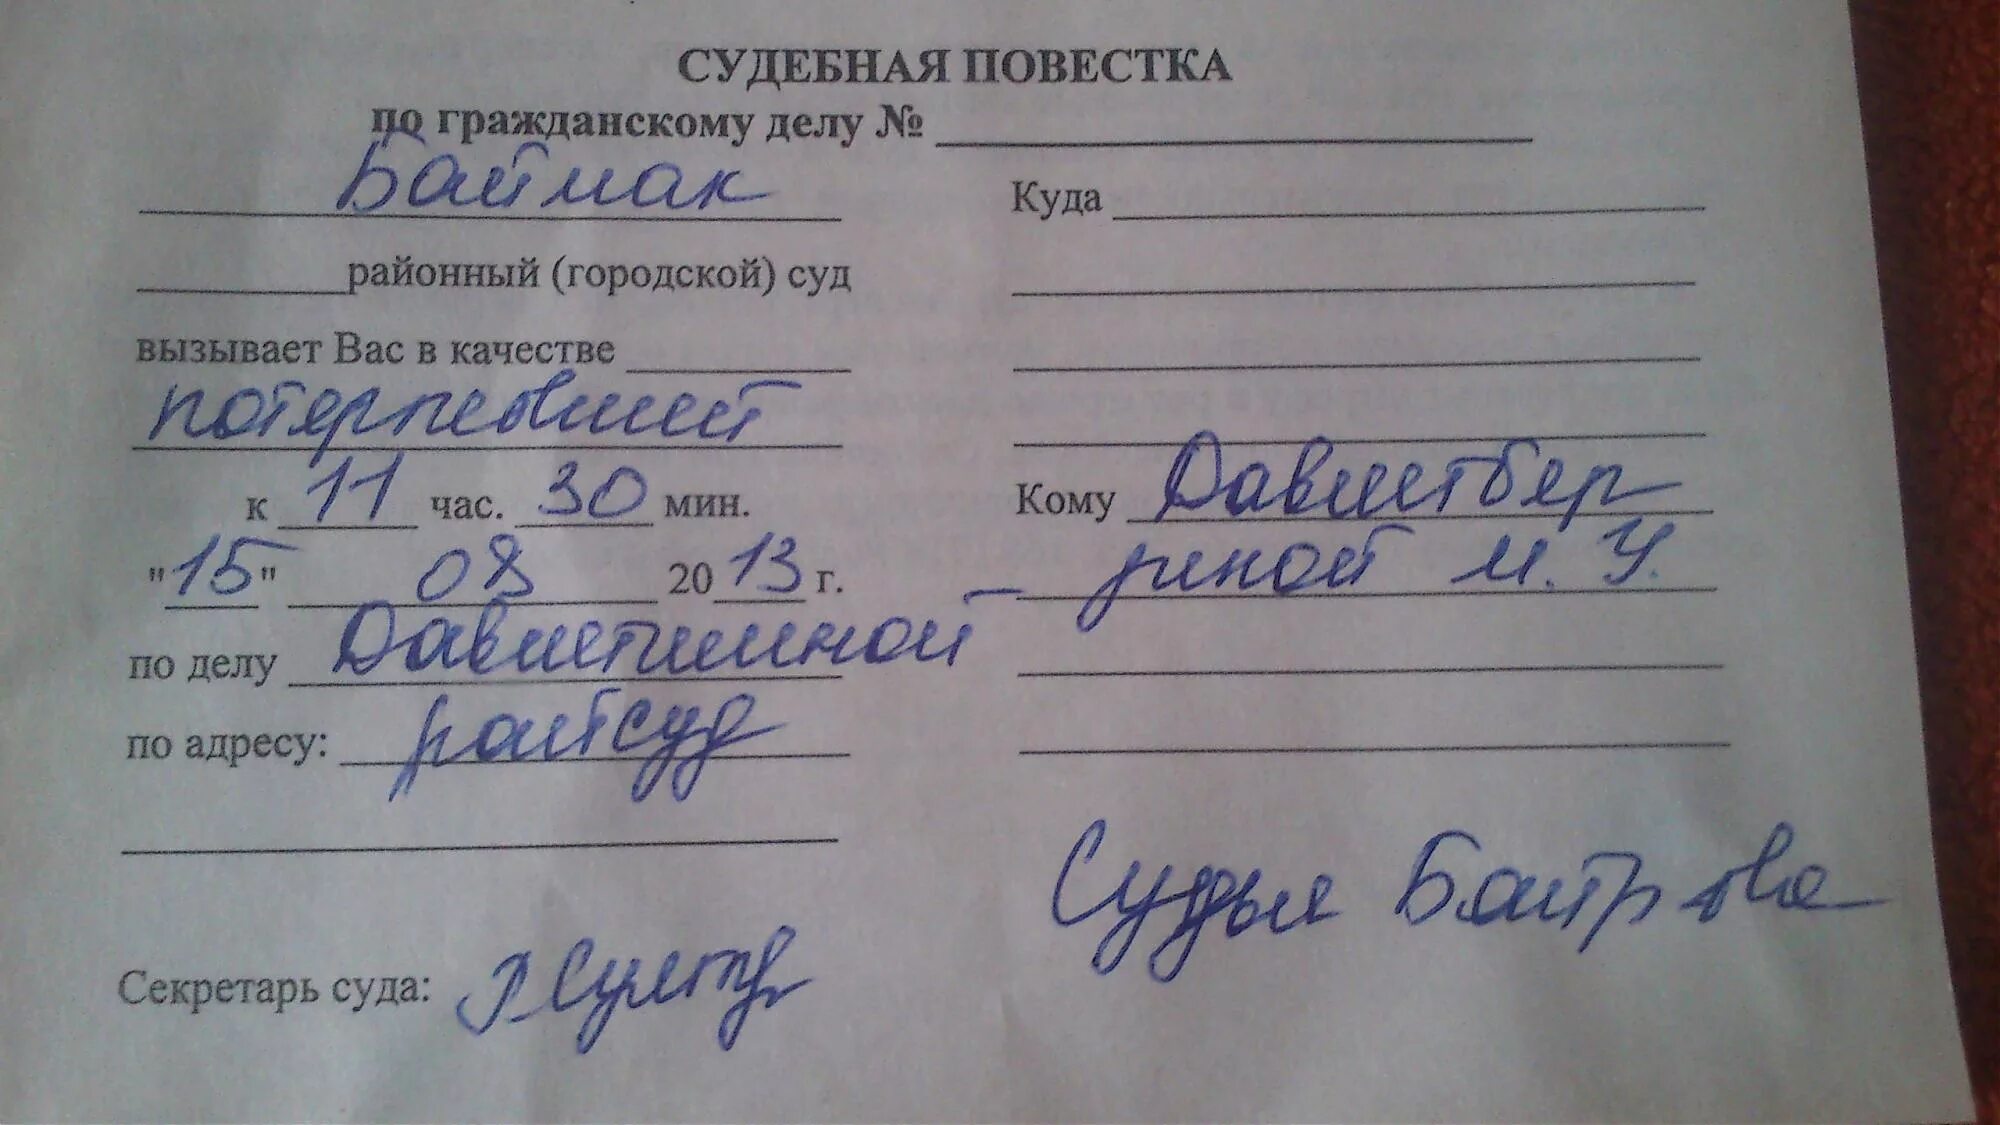 СУДЕБНАЯ ПОВЕСТКА
по гражданскому делу №
Баймак
районный (городской) суд
вызывает Вас в качестве
потерпевшей
к 11 час. 30 мин.
"15" 08 2013 г.
по делу Давлетшиной
по адресу: райсуд
Секретарь суда:
Куда
Кому Давлетбер
диной М. У.
Судья Баитрова